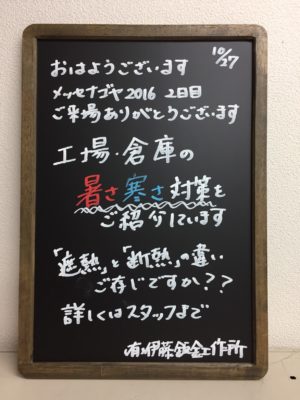 10/27
おはようございます
メッセナゴヤ2016 2日目
ご来場ありがとうございます
工場・倉庫の
暑さ寒さ対策を
ご紹介しています
「遮熱」と「断熱」の違い
ご存じですか??
詳しくはスタッフまで
(有)伊藤鈑金工作所